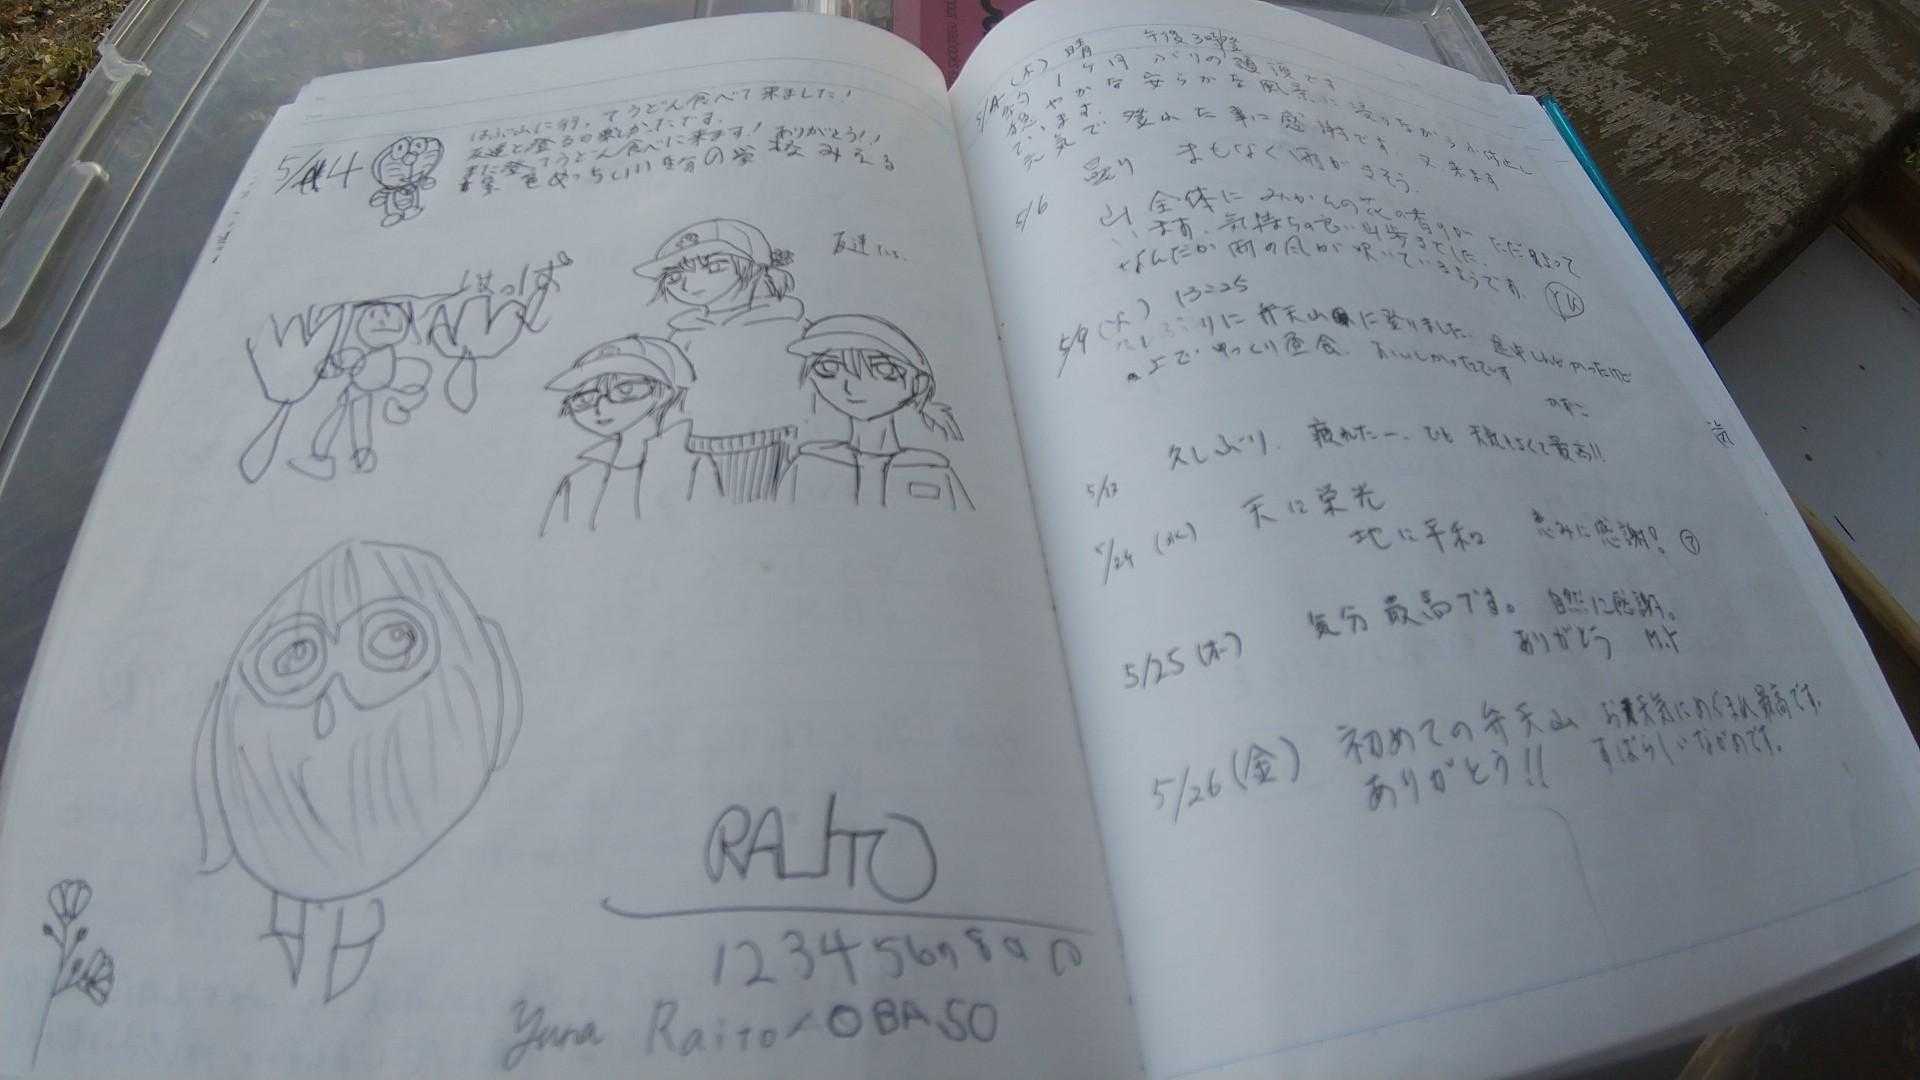 5/4
はぶ山に行ってうどん食べて来ました!
友達と登るの楽しかったです.
また登ってうどん食べに来ます! ありがとう!!
景色めっちゃいい 自分の学校みえる
友達たち.
はっぱ
RAITO
1234567890
Yuna Raito/OBA.50
(木) 晴 午後3時
1ヶ月ぶりの
やかな安らかな風景に浸りながら
います.
元気で登れた事に感謝です. 又来ます
5/6
曇り まもなく雨がきそう.
山全体にみかんの花の香りがただよって
います. 気持ちの良い山歩きでした.
なんだか雨の風が吹いているようです.
5/9(火) 13=25
久しぶりに弁天山に登りました.
上でゆっくり昼食. おいしかったです
かずこ
5/13
久しぶり. 疲れたー. でも天気もよくて最高!!
5/24 (水)
天に栄光
地に平和 恵みに感謝!
5/25(木)
気分最高です。自然に感謝。
ありがとう M.Y
5/26(金)
初めての弁天山 お天気にめぐまれ最高です.
ありがとう!! すばらしいながめです.